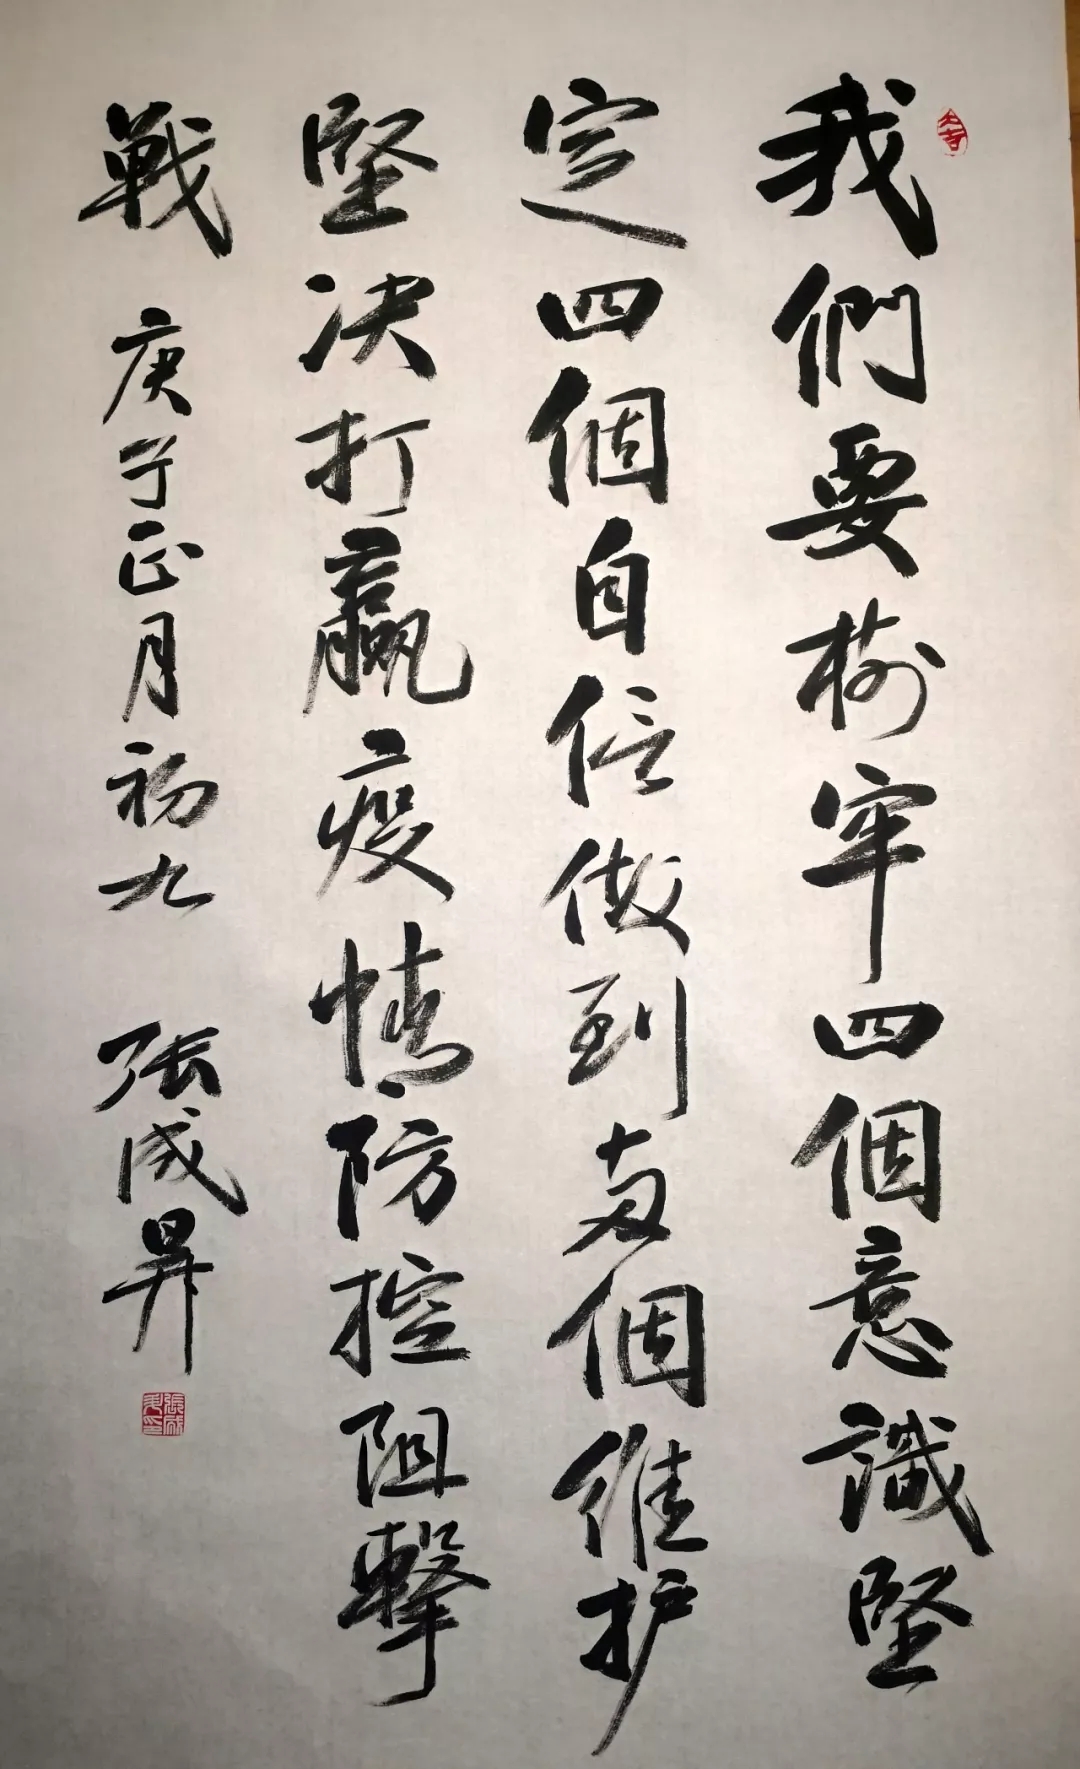 我們要樹牢四個意識堅
定四個自信做到兩個維护
堅决打贏疫情防控阻擊
戰 庚子正月初九 张成昇